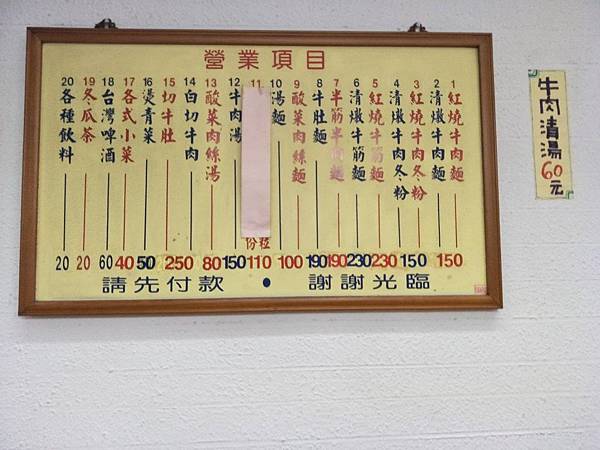 營業項目
1 紅燒牛肉麵
2 清燉牛肉麵
3 紅燒牛肉冬粉
4 清燉牛肉冬粉
5 紅燒牛筋麵
6 清燉牛筋麵
7 半筋半肉麵
8 牛肚麵
9 酸菜肉絲麵
10 湯麵
11
12 牛肉湯
13 酸菜肉絲湯
14 白切牛肉
15 切牛肚
16 燙青菜
17 各式小菜
18 台灣啤酒
19 冬瓜茶
20 各種飲料
20 20 60 40 50 250 80 150 110 100 190 190 230 230 150 150
請先付款 • 謝謝光臨
牛肉清湯60元